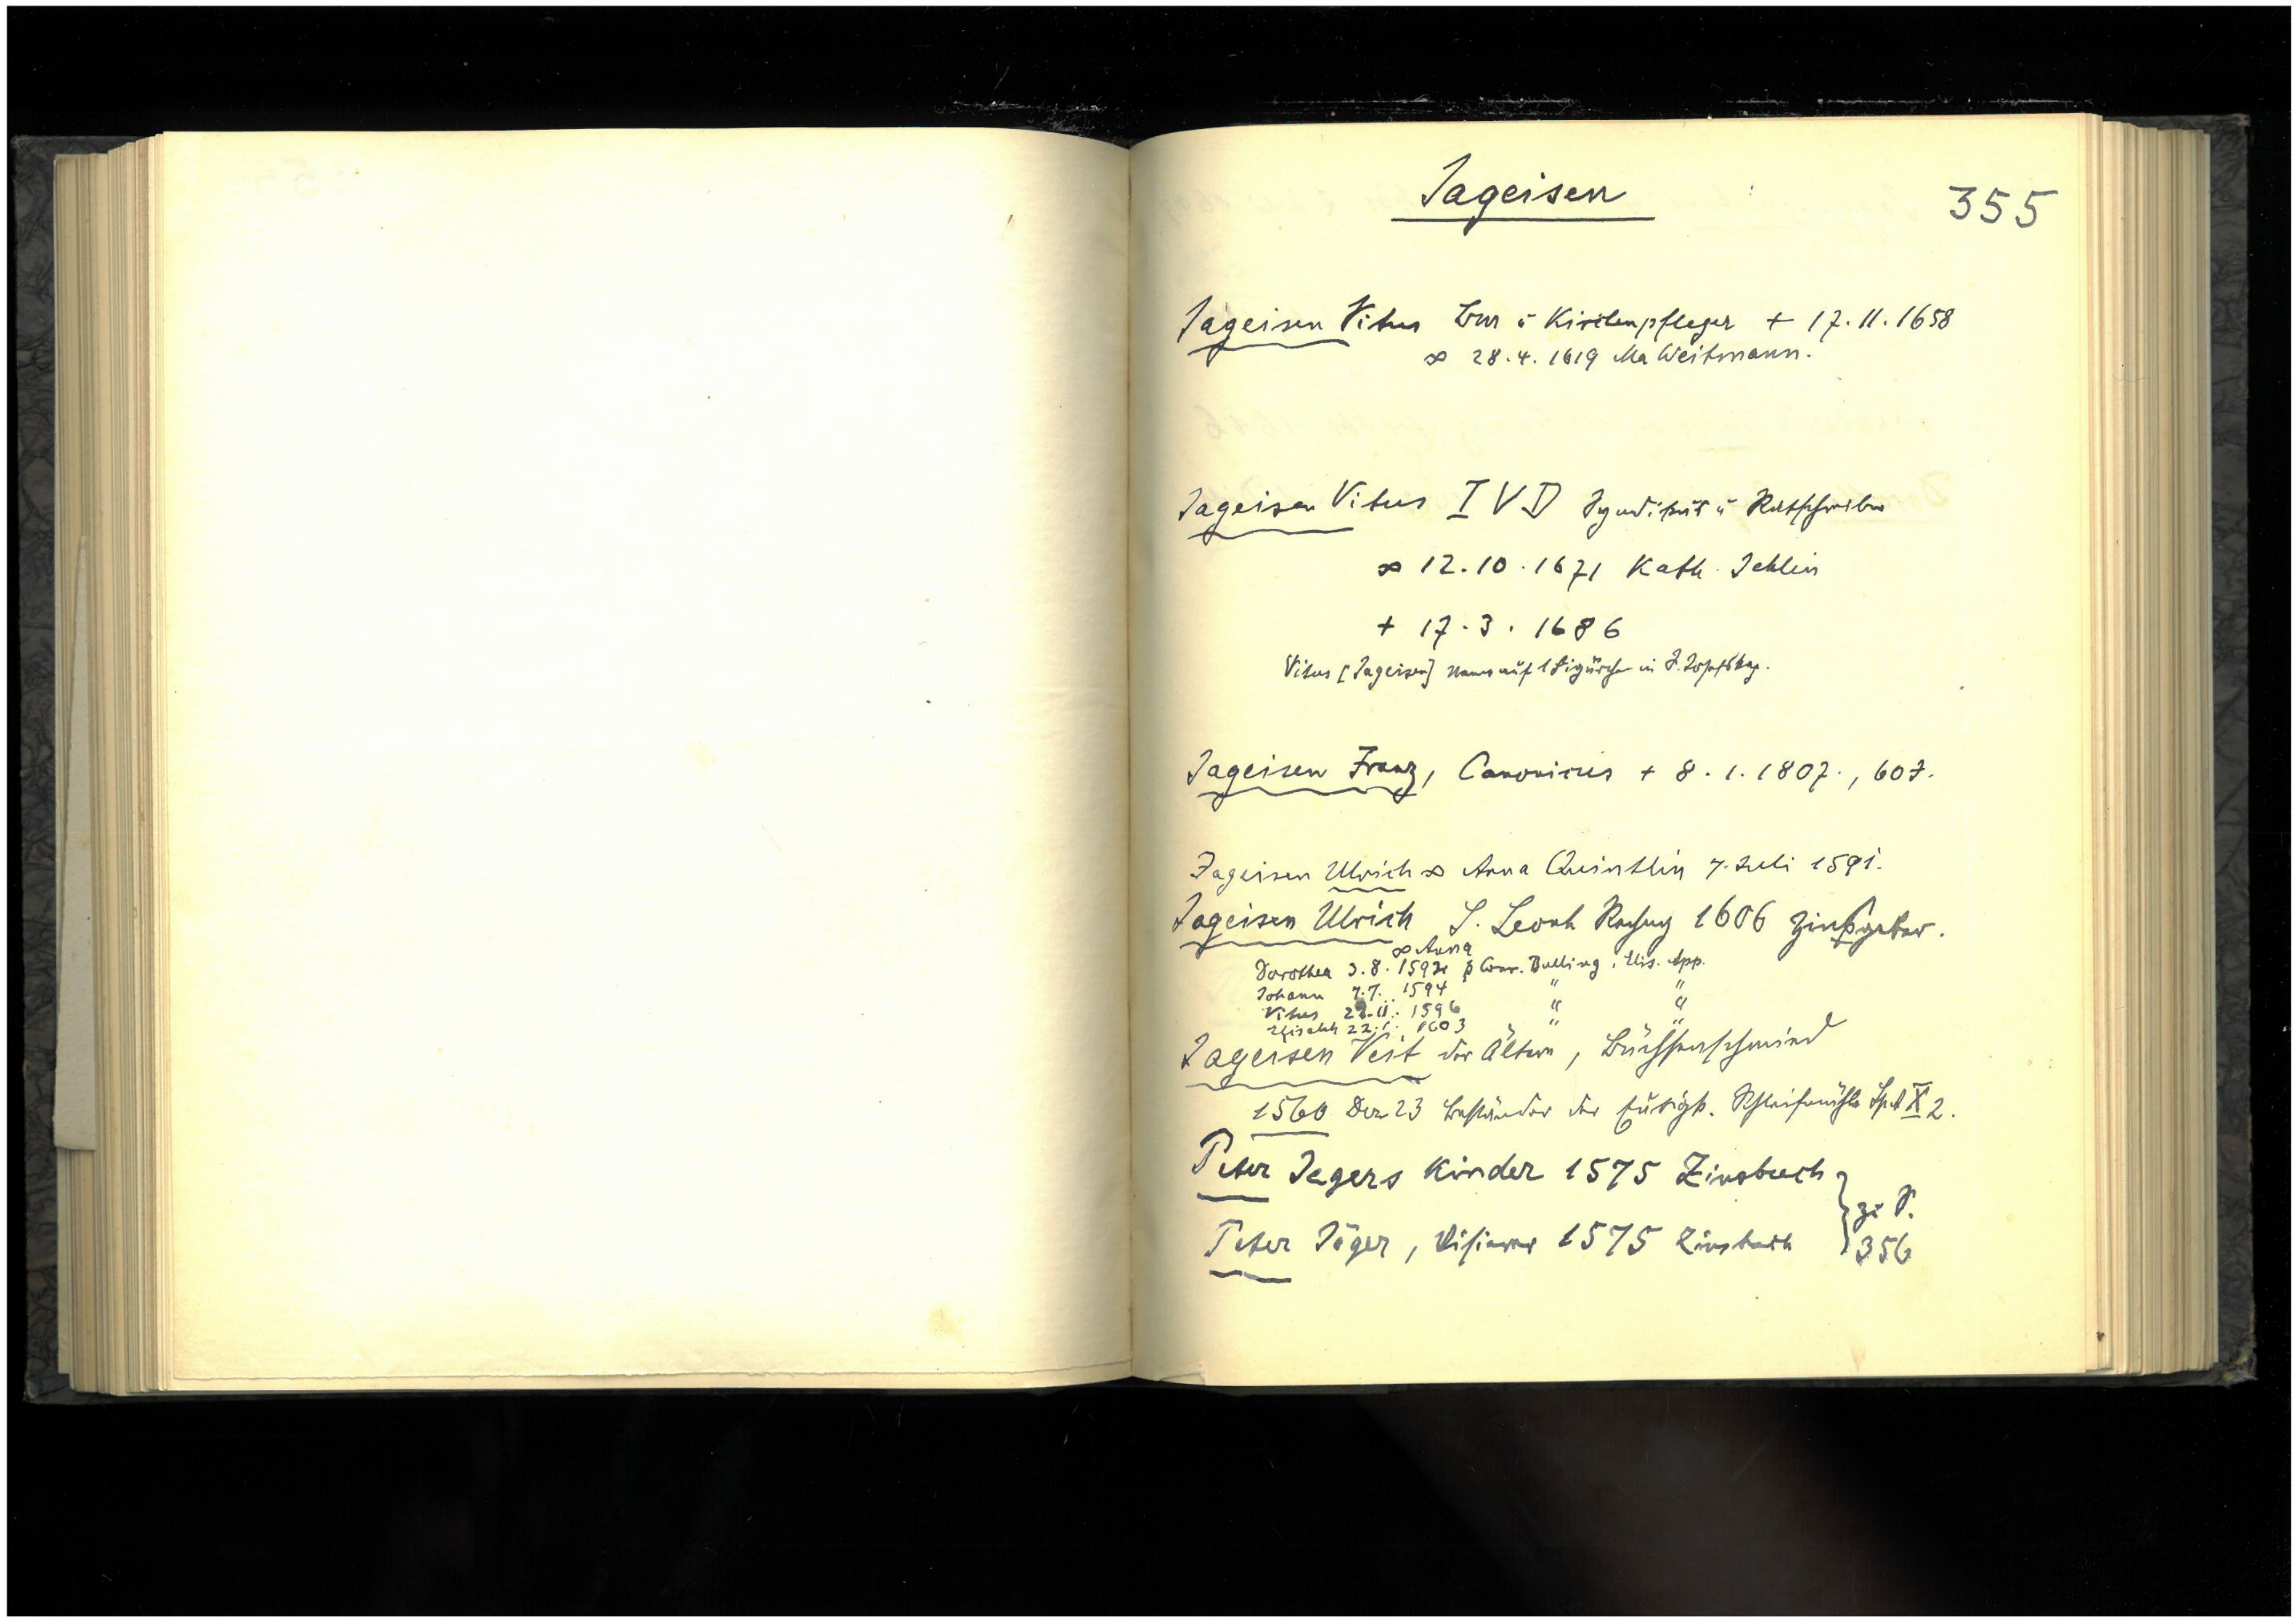 Jageisen
355
Jageisen Vitus Bm u Kirchenpfleger + 17.11.1658
∞ 28.4.1619 Ma Weitmann.
Jageisen Vitus I V D Syndikus u Ratschreiber
∞ 12.10.1671 Kath. Jehlin
+ 17.3.1686
Vitus [Jageisen] Name auf 1 Figürchen in
Jageisen Franz, Canonicus + 8.1.1807., 60J.
Jageisen Ulrich ∞ Anna Quintlin 7. Juli 1591.
Jageisen Ulrich S. Leonh 1606 Zinßgeber.
∞ Anna
Dorothea 3.8.1592 Conr. Bulling, Elis. App.
Johann 7.7. 1594 " "
Vitus 22.11. 1596 " "
Elisabeth 22.1. 1603 " "
Jageisen Veit der Ältere, Büchsenschmied
1560 Dez 23 Beständer der Schleifmühle Spit X 2.
Peter Jegers Kinder 1575 Zinsbuch
Peter Jäger, Visierer 1575 Zinsbuch
zu S.
356